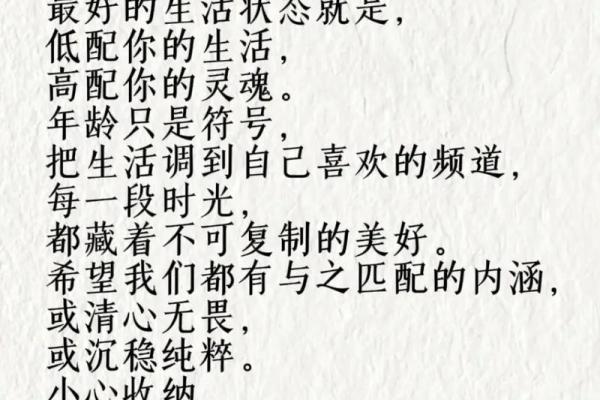 最好的生活状态就是，
低配你的生活，
高配你的灵魂。
年龄只是符号，
把生活调到自己喜欢的频道，
每一段时光，
都藏着不可复制的美好。
希望我们都有与之匹配的内涵，
或清心无畏，
或沉稳纯粹。
小心收纳